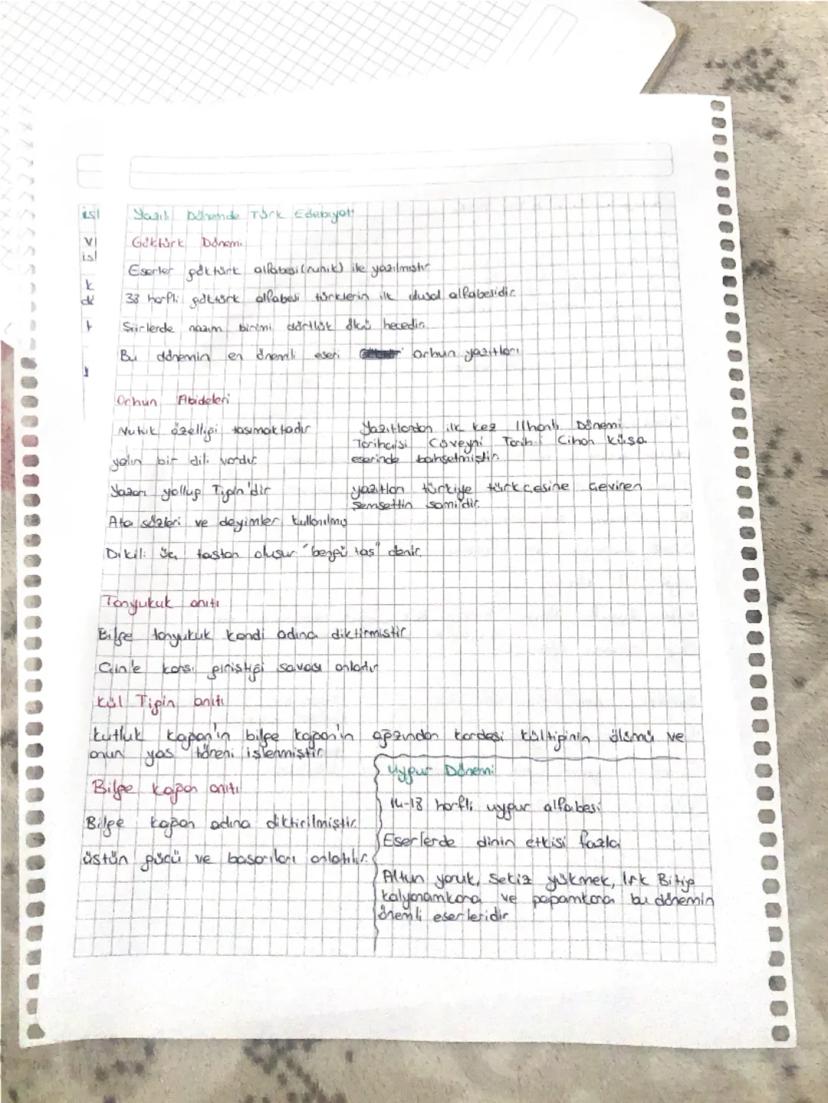 Yazılı Dönemde Türk Edebiyatı
Göktürk Dönemi
Eserler göktürk alfabesi (runik) ile yazılmıştır
38 harfli göktürk alfabesi türklerin ilk ulusal alfabesidir.
Şiirlerde nazım birimi dörtlük ölçü hecedir.
Bu dönemin en önemli eseri orhun yazıtları
Orhun Abideleri
Nutuk özelliği taşımaktadır
yalın bir dili vardır
Yazarı yollug Tigin'dir
Ata sözleri ve deyimler kullanılmış
Dikili üç taştan oluşur "bengü taş" denir.
Yazıtlardan ilk kez İlhanlı Dönemi
Tarihçisi Cüveyni Tarih-i Cihan Küşa
eserinde bahsetmiştir.
yazıtları türkiye türkçesine çeviren
Şemsettin Sami'dir.
Tonyukuk anıtı
Bilge tonyukuk kendi adına diktirmiştir
Çin'e karşı giriştiği savaşı anlatır
Kül Tigin anıtı
kutluk kağan'ın bilge kağan'ın ağzından kardeşi kültiginin ölümü ve
onun yas töreni işlenmiştir.
Bilge kağan anıtı
Bilge kağan adına diktirilmiştir.
üstün gücü ve başarıları anlatılır.
Uygur Dönemi
14-18 harfli uygur alfabesi
Eserlerde dinin etkisi fazla
Altun yaruk, Sekiz yükmek, Irk Bitig
kalyanamkara ve papamkara bu dönemin
önemli eserleridir